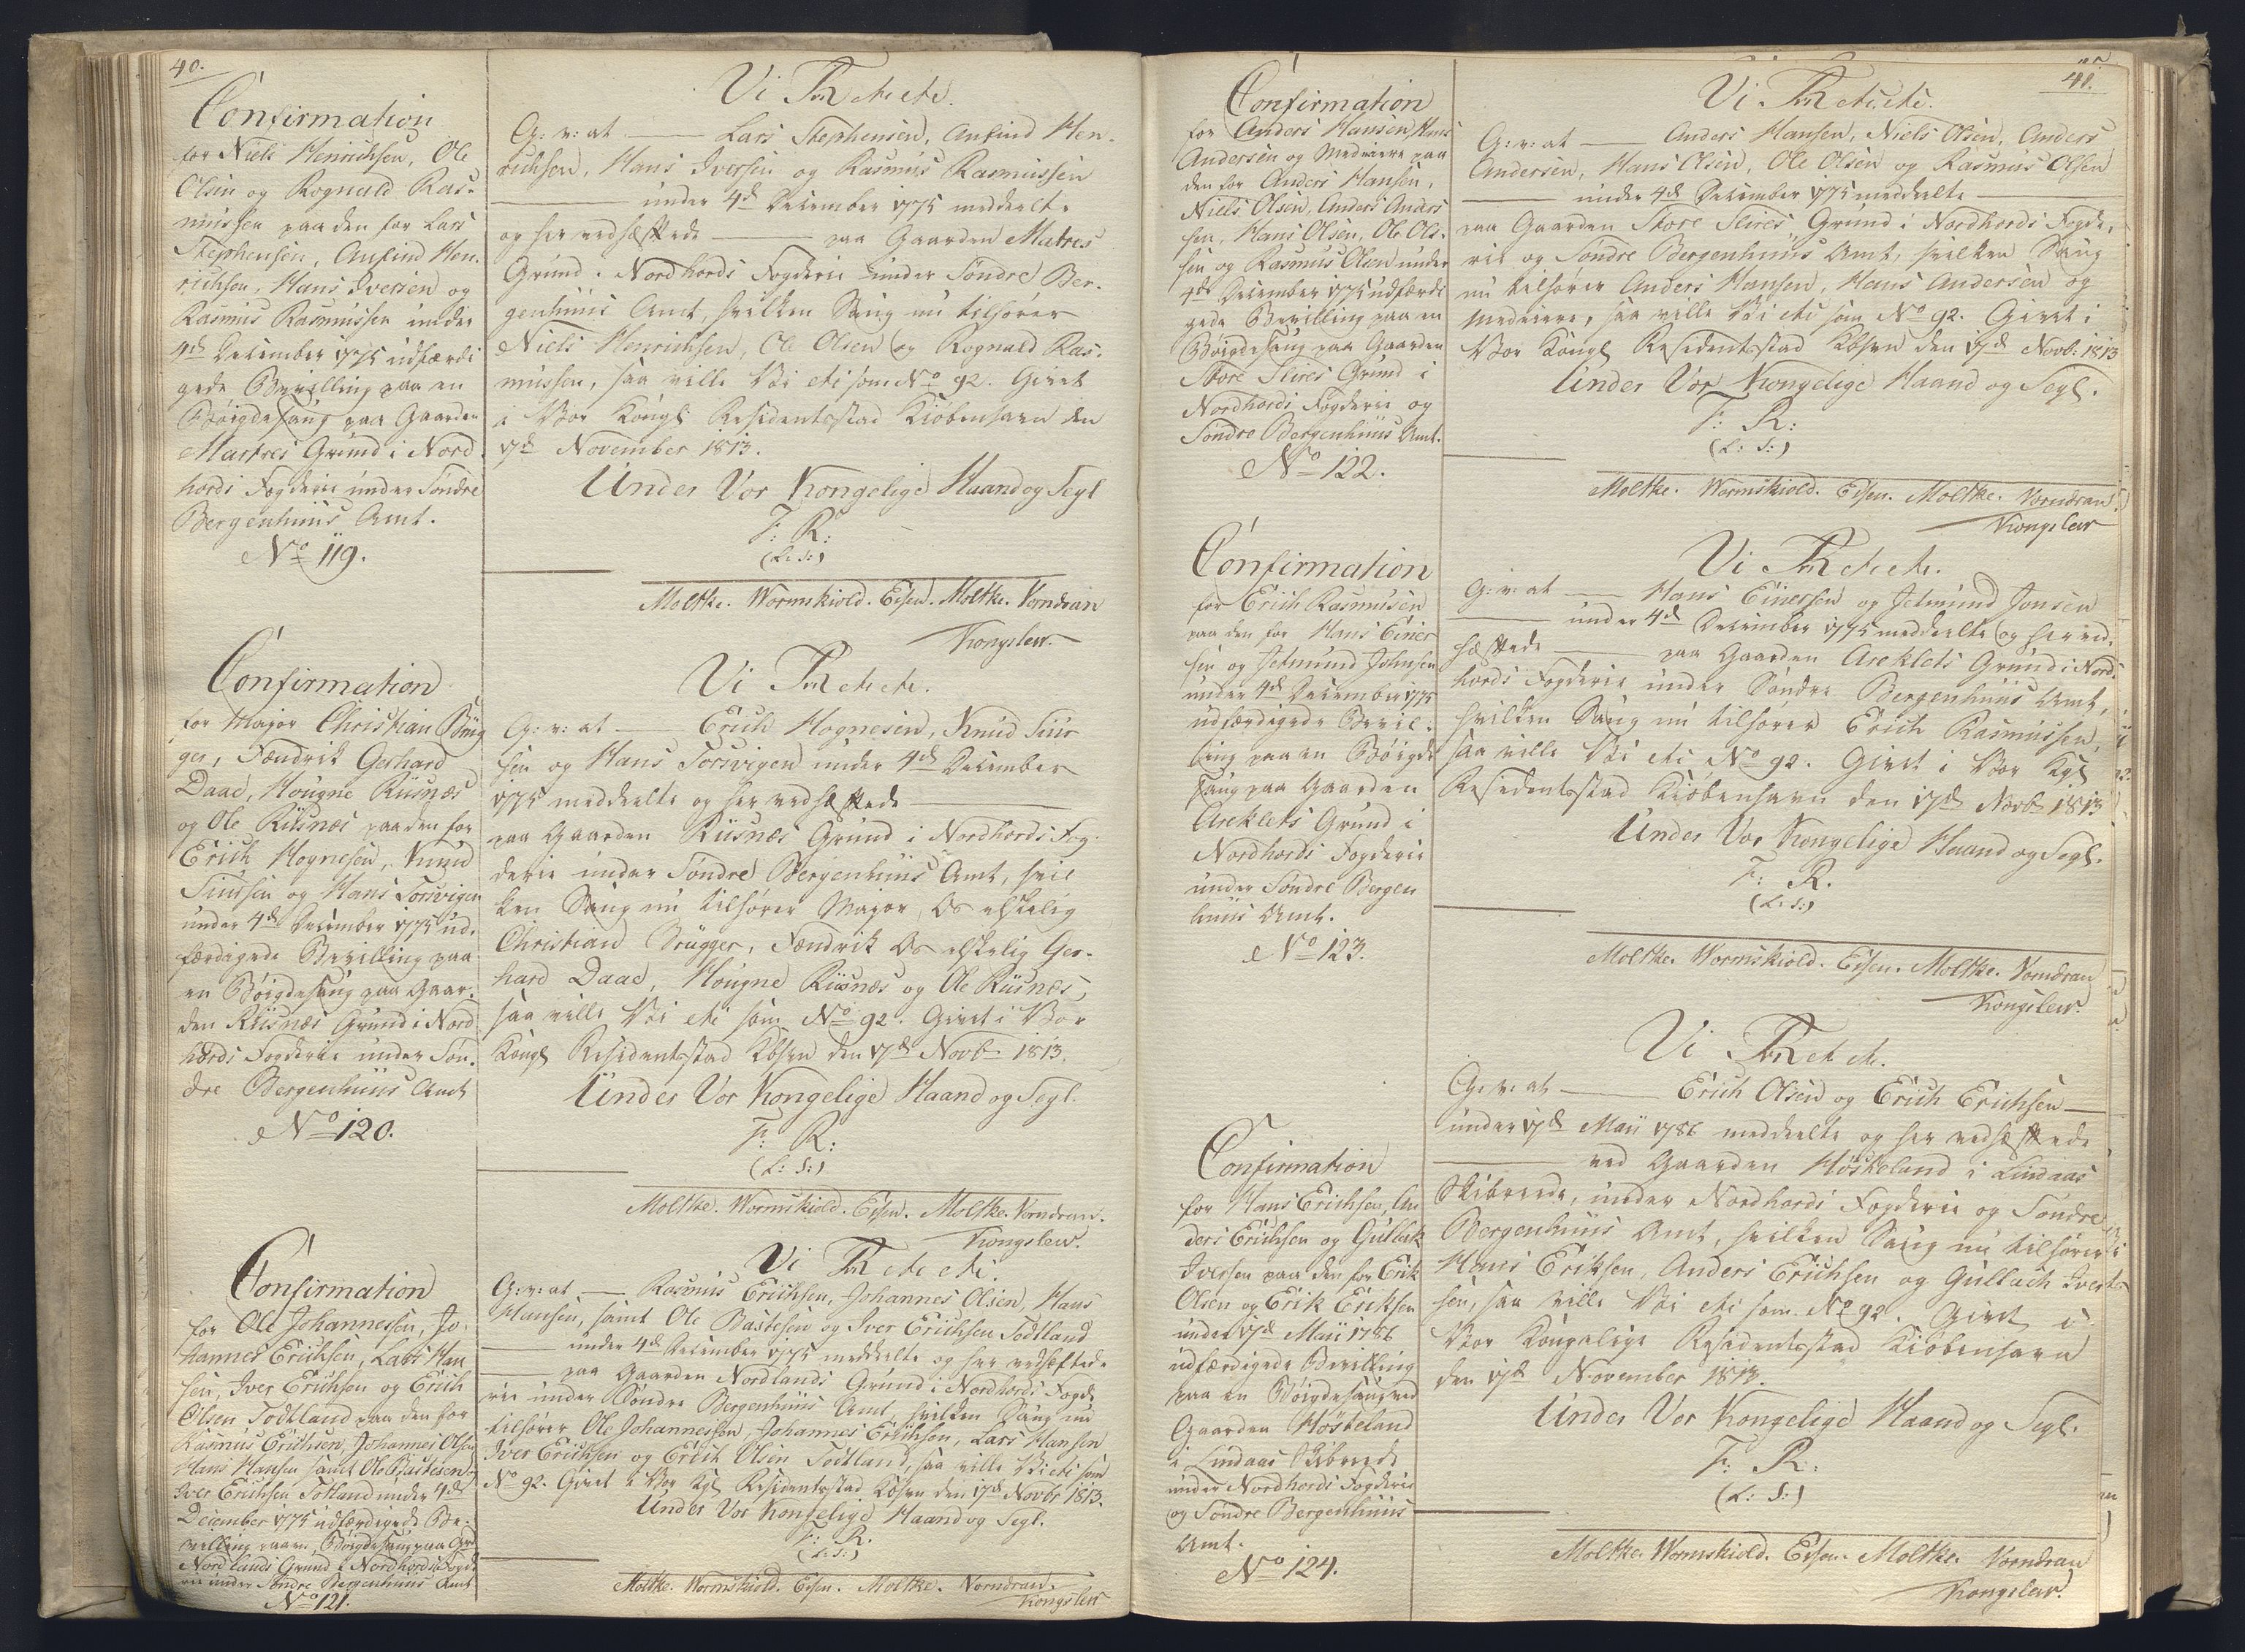 40.
Confirmation
for Niels Henrichsen, Ole
Olsen og Rognald Ras-
mussen paa den for Lars
Stephensen, Anfind Hen-
richsen, Hans Iversen og
Rasmus Rasmussen under
4de December 1775 udfærdi
gede Bevilling paa en
Bøigdesaug paa Gaarden
Matres Grund i Nord
hords Fogderie under Søndre
Bergenhuus Amt.
No 119.
Vi FR etc etc.
G: v: at — Lars Stephensen, Anfind Hen-
richsen, Hans Iversen og Rasmus Rasmussen
— under 4de December 1775 meddeelte
og her vedhæftede — paa Gaarden Matres
Grund i Nordhords Fogderie under Søndre Ber-
genhuus Amt, hvilken Saug nu tilhører
Niels Henrichsen, Ole Olsen og Rognald Ras-
mussen, saa ville Vi etc som No 92. Givet
i Vor Kongl: Residentsstad Kiøbenhavn den
17de November 1813.
Under Vor Kongelige Haand og Segl
F: R:
(L: S:)
Moltke. Wormskiold. Eisen. Moltke. Vorndran
Kongslew.
Confirmation
for Major Christian Brüg
ger, Fændrik Gerhard
Daae, Hougne Riisnæs
og Ole Riisnæs paa den for
Erich Hognesen, Knud
Siursen og Hans Torsvigen
under 4de December 1775 ud-
færdigede Bevilling paa
en Bøigdesaug paa Gaar-
den Riisnæs Grund i Nord
hords Fogderie under Søn-
dre Bergenhuus Amt
No 120.
Vi FR etc etc.
G: v: at — Erich Hognesen, Knud Siur
sen og Hans Torsvigen under 4de December
1775 meddeelte og her vedhæftede —
paa Gaarden Riisnæs Grund i Nordhords Fog-
derie under Søndre Bergenhuus Amt, hvil
ken Saug nu tilhører Major Os elskelig
Christian Brügger, Fændrik Os elskelig Ger-
hard Daae, Hougne Riisnæs og Ole Riisnæs,
saa ville Vi etc som No 92. Givet i Vor
Kongl Residentsstad Kbhvn den 17de Novbr 1813.
Under Vor Kongelige Haand og Segl.
F: R:
(L: S:)
Moltke. Wormskiold. Eisen. Moltke. Vorndran.
Kongslew.
Confirmation
for Ole Johannessen, Jo-
hannes Erichsen, Lars Han
sen, Iver Erichsen og Erich
Olsen Todtland paa den for
Rasmus Erichsen, Johannes Olsen
Hans Hansen samt Ole Bastesen og
Iver Erichsen Totland under 4de
December 1775 udfærdigede Be-
villing paa en Bøigdesaug paa Grd
Nordlands Grund i Nordhords Fogde
rie under Søndre Bergenhuus Amt
No 121.
Vi FR etc etc.
G: v: at — Rasmus Erichsen, Johannes Olsen, Hans
Hansen, samt Ole Bastesen og Iver Erichsen Todtland
— under 4de December 1775 meddeelte og her vedhæftede
— paa Gaarden Nordlands Grund i Nordhords Fogde
rie under Søndre Bergenhuus Amt, hvilken Saug nu
tilhører Ole Johannessen, Johannes Erichsen, Lars Hansen
Iver Erichsen og Erich Olsen Todtland, saa ville Vi etc som
No 92. Givet i Vor Kgl Residentsstad Kbhvn den 17de Novbr 1813.
Under Vor Kongelige Haand og Segl.
F: R:
(L: S:)
Moltke. Wormskiold. Eisen. Moltke. Vorndran.
Kongslew
41.
Confirmation
for Anders Hansen, Hans
Andersen og Medeiere paa
den for Anders Hansen,
Niels Olsen, Anders Anders
sen, Hans Olsen, Ole Ols-
sen og Rasmus Olsen under
4de December 1775 udfærdi
gede Bevilling paa en
Bøigdesaug paa Gaarden
Store Flires Grund i
Nordhords Fogderie og
Søndre Bergenhuus Amt.
No 122.
Vi FR etc etc.
G: v: at — Anders Hansen, Niels Olsen, Anders
Andersen, Hans Olsen, Ole Olsen og Rasmus Olsen
— under 4de December 1775 meddeelte —
paa Gaarden Store Flires Grund i Nordhords Fogde-
rie og Søndre Bergenhuus Amt, hvilken Saug
nu tilhører Anders Hansen, Hans Andersen og
Medeiere, saa ville Vi etc som No 92. Givet i
Vor Kongl Residentsstad Kbhvn den 17de Novb: 1813
Under Vor Kongelige Haand og Segl.
F: R:
(L: S:)
Moltke. Wormskiold. Eisen. Moltke. Vorndran.
Kongslew
Confirmation
for Erich Rasmusen
paa den for Hans Einer
sen og Jetmund Johnsen
under 4de December 1775
udfærdigede Bevil-
ling paa en Bøigde
saug paa Gaarden
Areklets Grund i
Nordhords Fogderie
under Søndre Bergen
huus Amt.
No 123.
Vi FR etc etc.
G: v: at — Hans Einersen og Jetmund Jonsen
— under 4de December 1775 meddeelte og her ved-
hæftede — paa Gaarden Areklets Grund i Nord-
hords Fogderie under Søndre Bergenhuus Amt,
hvilken Saug nu tilhører Erich Rasmussen,
saa ville Vi etc No 92. Givet i Vor Kgl
Residentsstad Kiøbenhavn den 17de Novbr 1813
Under Vor Kongelige Haand og Segl.
F: R.
(L: S:)
Moltke. Wormskiold. Eisen. Moltke. Vorndran
Kongslew.
Confirmation
for Hans Erichsen, An
ders Erichsen og Gullak
Iversen paa den for Erik
Olsen og Erik Eriksen
under 17de Maii 1786
udfærdigede Bevilling
paa en Bøigdesaug ved
Gaarden Høskeland
i Lindaas Skibrede
under Nordhords Fogderie
og Søndre Bergenhuus
Amt.
No 124.
Vi FR etc etc.
G: v: at — Erich Olsen og Erich Erichsen —
under 17de Maii 1786 meddeelte og her vedhæftede
— ved Gaarden Høskeland i Lindaas
Skibrede, under Nordhords Fogderie og Søndre
Bergenhuus Amt, hvilken Saug nu tilhører
Hans Eriksen, Anders Erichsen og Gullach Iver-
sen, saa ville Vi etc som No 92. Givet i
Vor Kongelige Residentsstad Kiøbenhavn
den 17de November 1813.
Under Vor Kongelige Haand og Segl.
F: R:
(L: S:)
Moltke. Wormskiold. Eisen. Moltke. Vorndran
Kongslew.